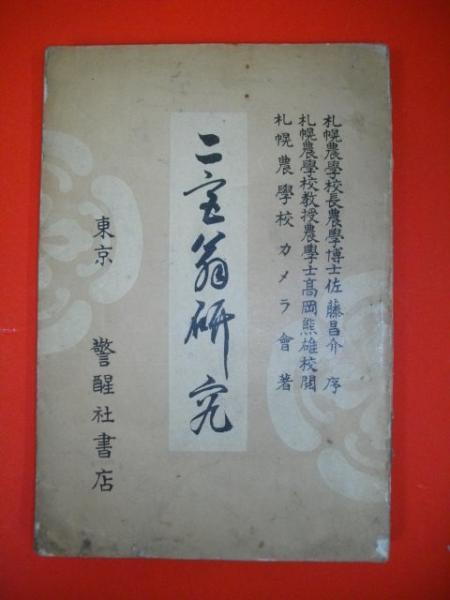 札幌農學校長農學博士佐藤昌介序
札幌農學校教授農學士高岡熊雄校閲
札幌農學校カメラ會著
二宮翁研究
東京 警醒社書店